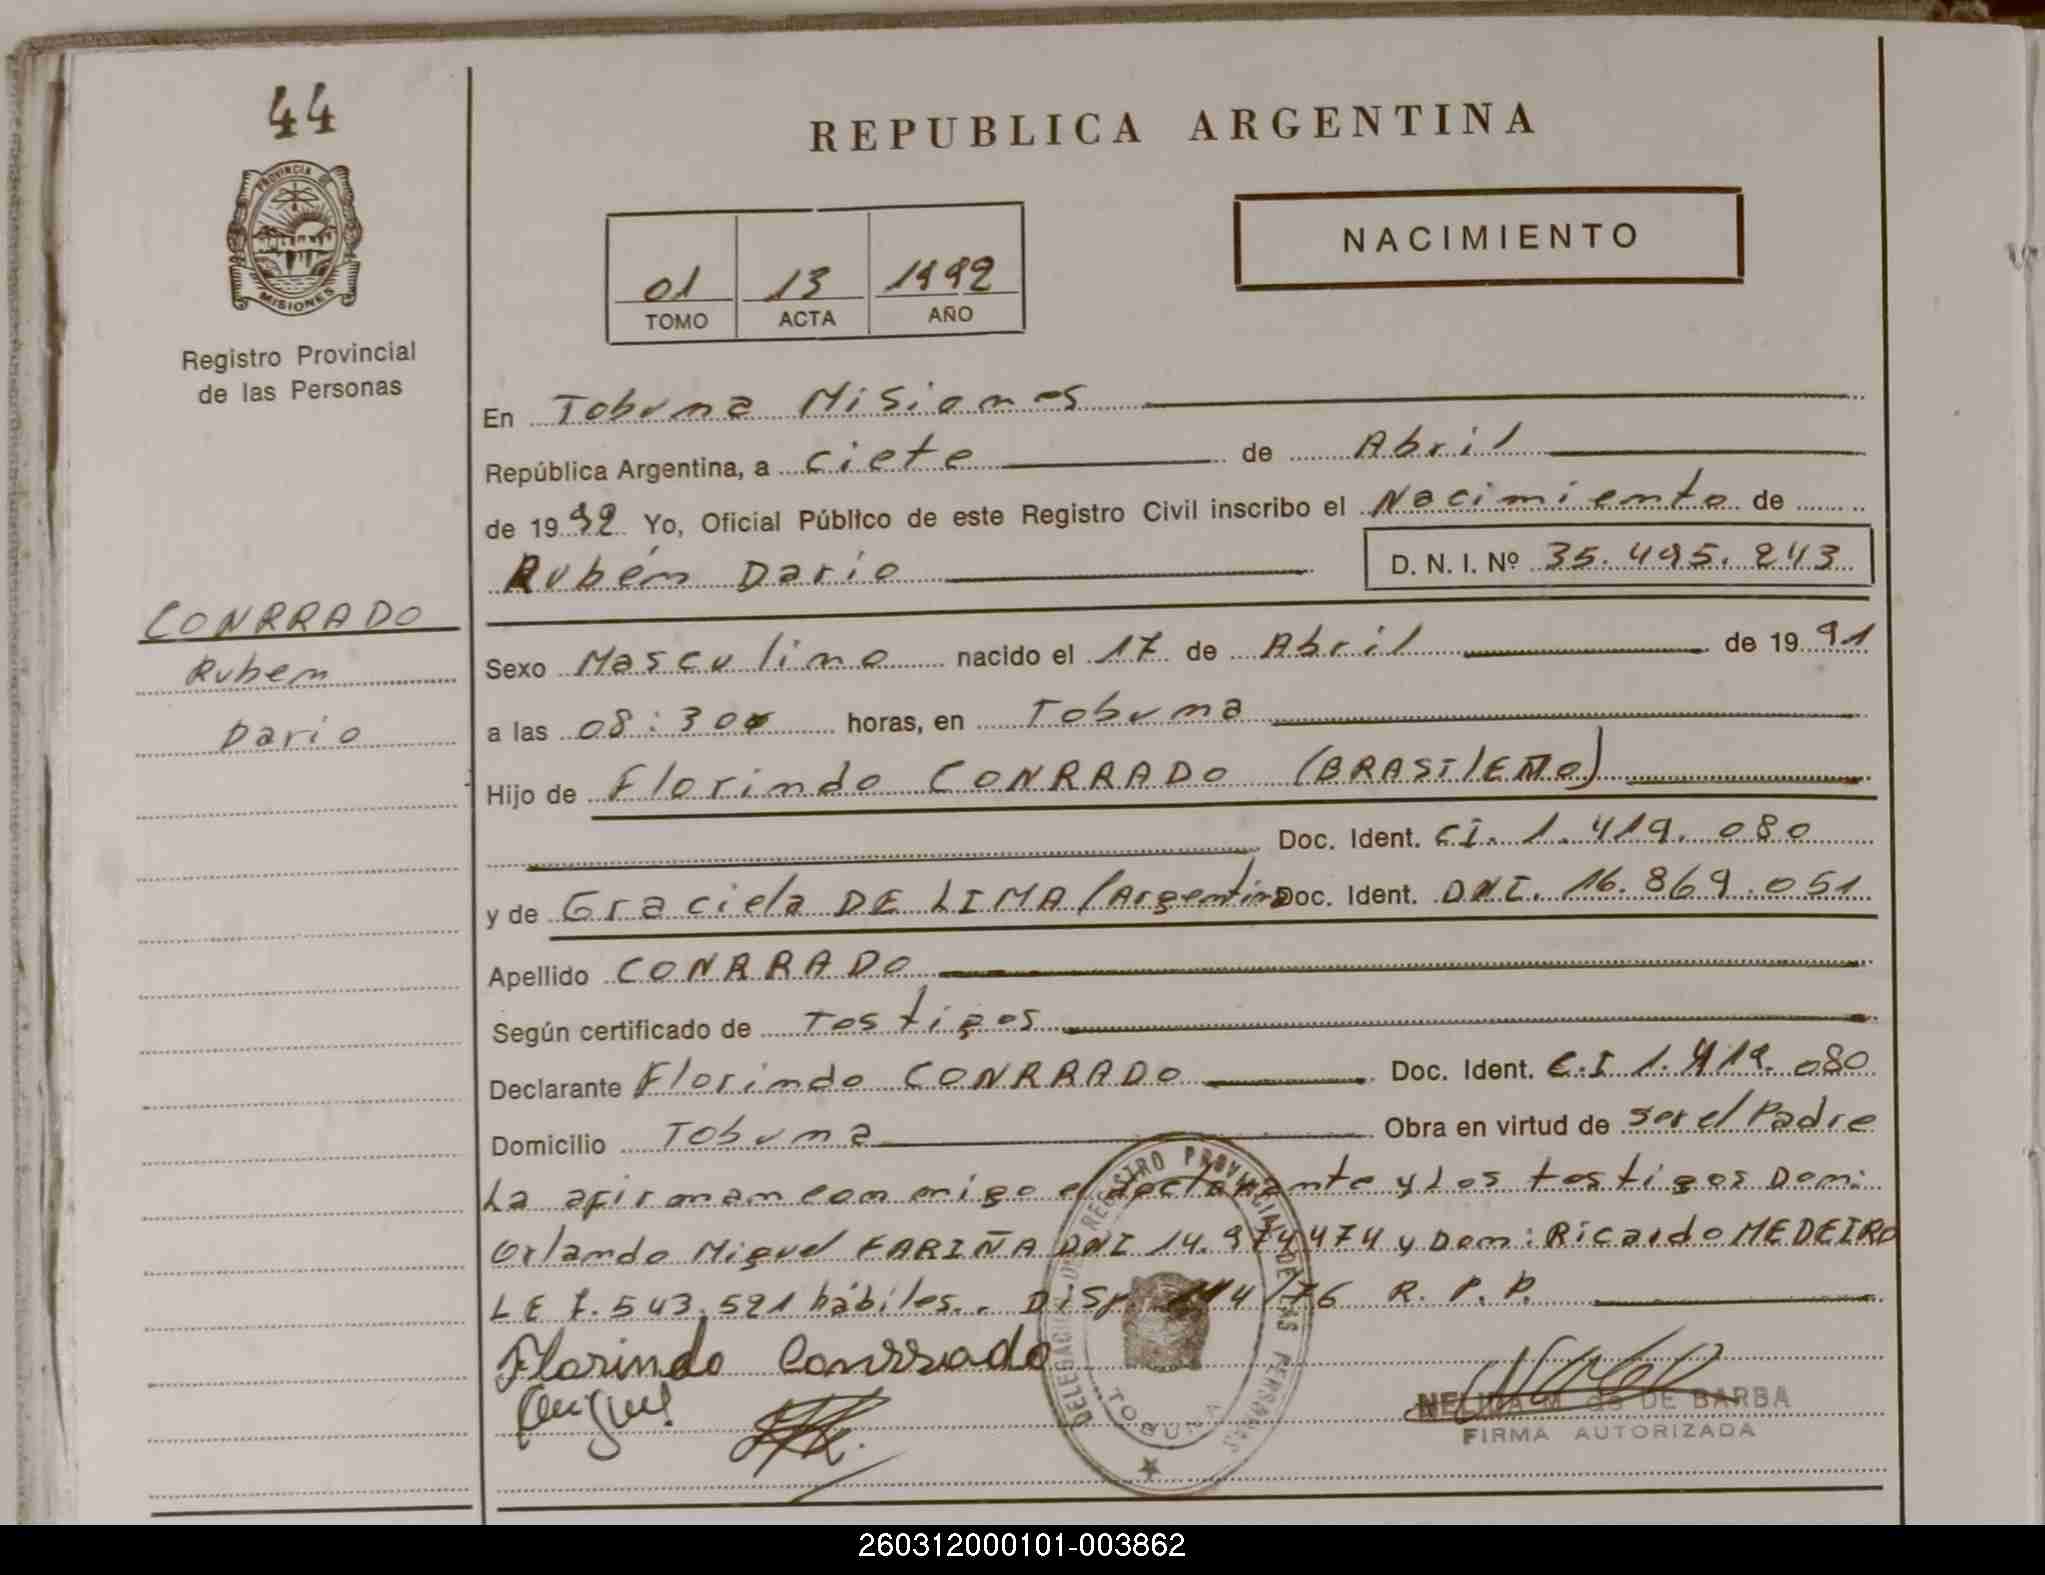 44
REPUBLICA ARGENTINA
PROVINCIA DE
MISIONES
NACIMIENTO
01 13 1992
TOMO ACTA AÑO
Registro Provincial
de las Personas
En Tobuna Misiones
República Argentina, a ciete de Abril
de 1992 Yo, Oficial Público de este Registro Civil inscribo el Nacimiento de
Rubén Dario D. N. I. Nº 35.495.243
CONRRADO
Ruben
Dario
Sexo Masculino nacido el 17 de Abril de 1991
a las 08:30 horas, en Tobuna
Hijo de Florindo CONRRADO (BRASILEÑO)
Doc. Ident. CI. 1.419.080
y de Graciela DE LIMA (Argentina Doc. Ident. DNI. 16.869.051
Apellido CONRRADO
Según certificado de Testigos
Declarante Florindo CONRRADO Doc. Ident. C.I 1.419.080
Domicilio Tobuna Obra en virtud de ser el Padre
La afirman con migo el declarante y Los testigos Don:
Orlando Miguel FARIÑA DNI 14.974474 y Don: Ricardo MEDEIRO
LE 7.543.521 hábiles. Disp. 114/76 R. P. P.
Florindo Conrrado
Miguel
DELEGACION REGISTRO PROVINCIAL DE LAS PERSONAS
TOBUNA
NELIDA M. DE BARBA
FIRMA AUTORIZADA
260312000101-003862